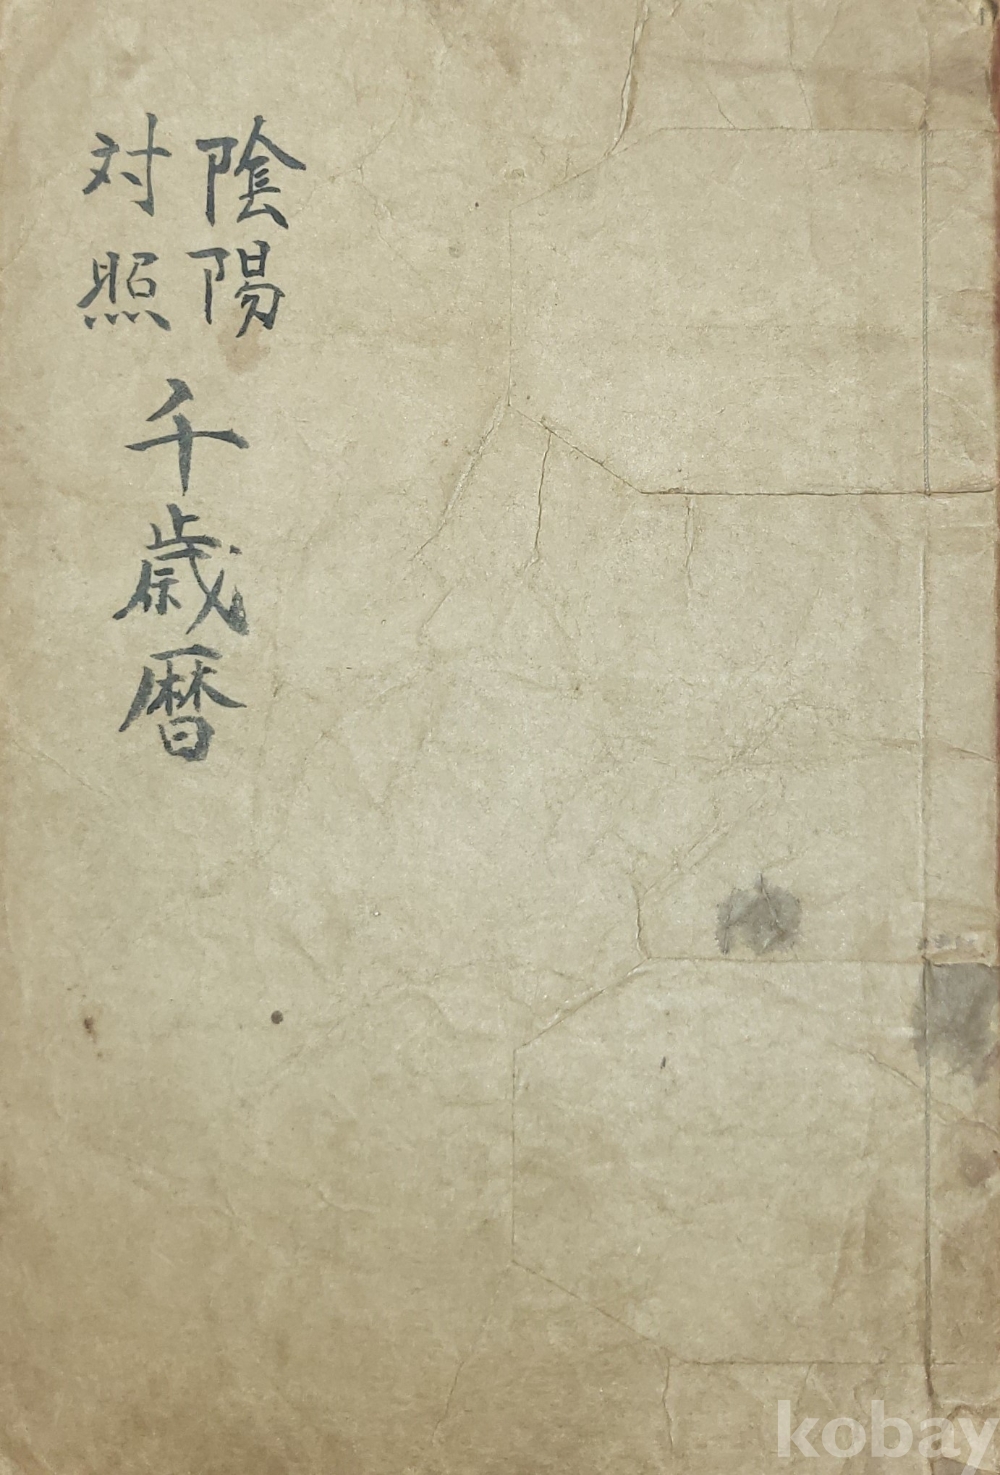 陰陽
対照
千歳暦
kobay